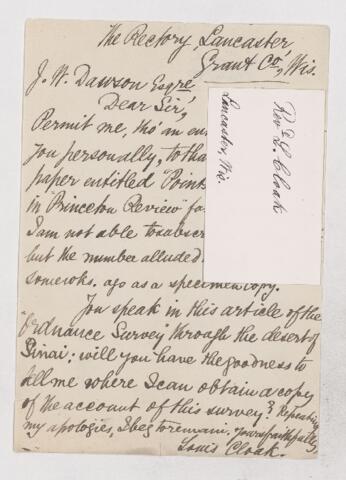 The Rectory Lancaster,
Grant Co, Wis.
J. W. Dawson Esqre
Dear Sir,
Permit me, tho' an en
you personally, to tha
paper entitled "Points
in "Princeton Review" fo
I am not able to subscr
but the number alluded
some wks. ago as a specimen copy.
You speak in this article of the
"Ordnance Survey" through the desert of
Sinai; will you have the goodness to
tell me where I can obtain a copy
of the account of this survey? Repeating
my apologies, I beg to remain. Yours faithfully,
Louis Cloak.
Revd L. Cloak
Lancaster, Wis.